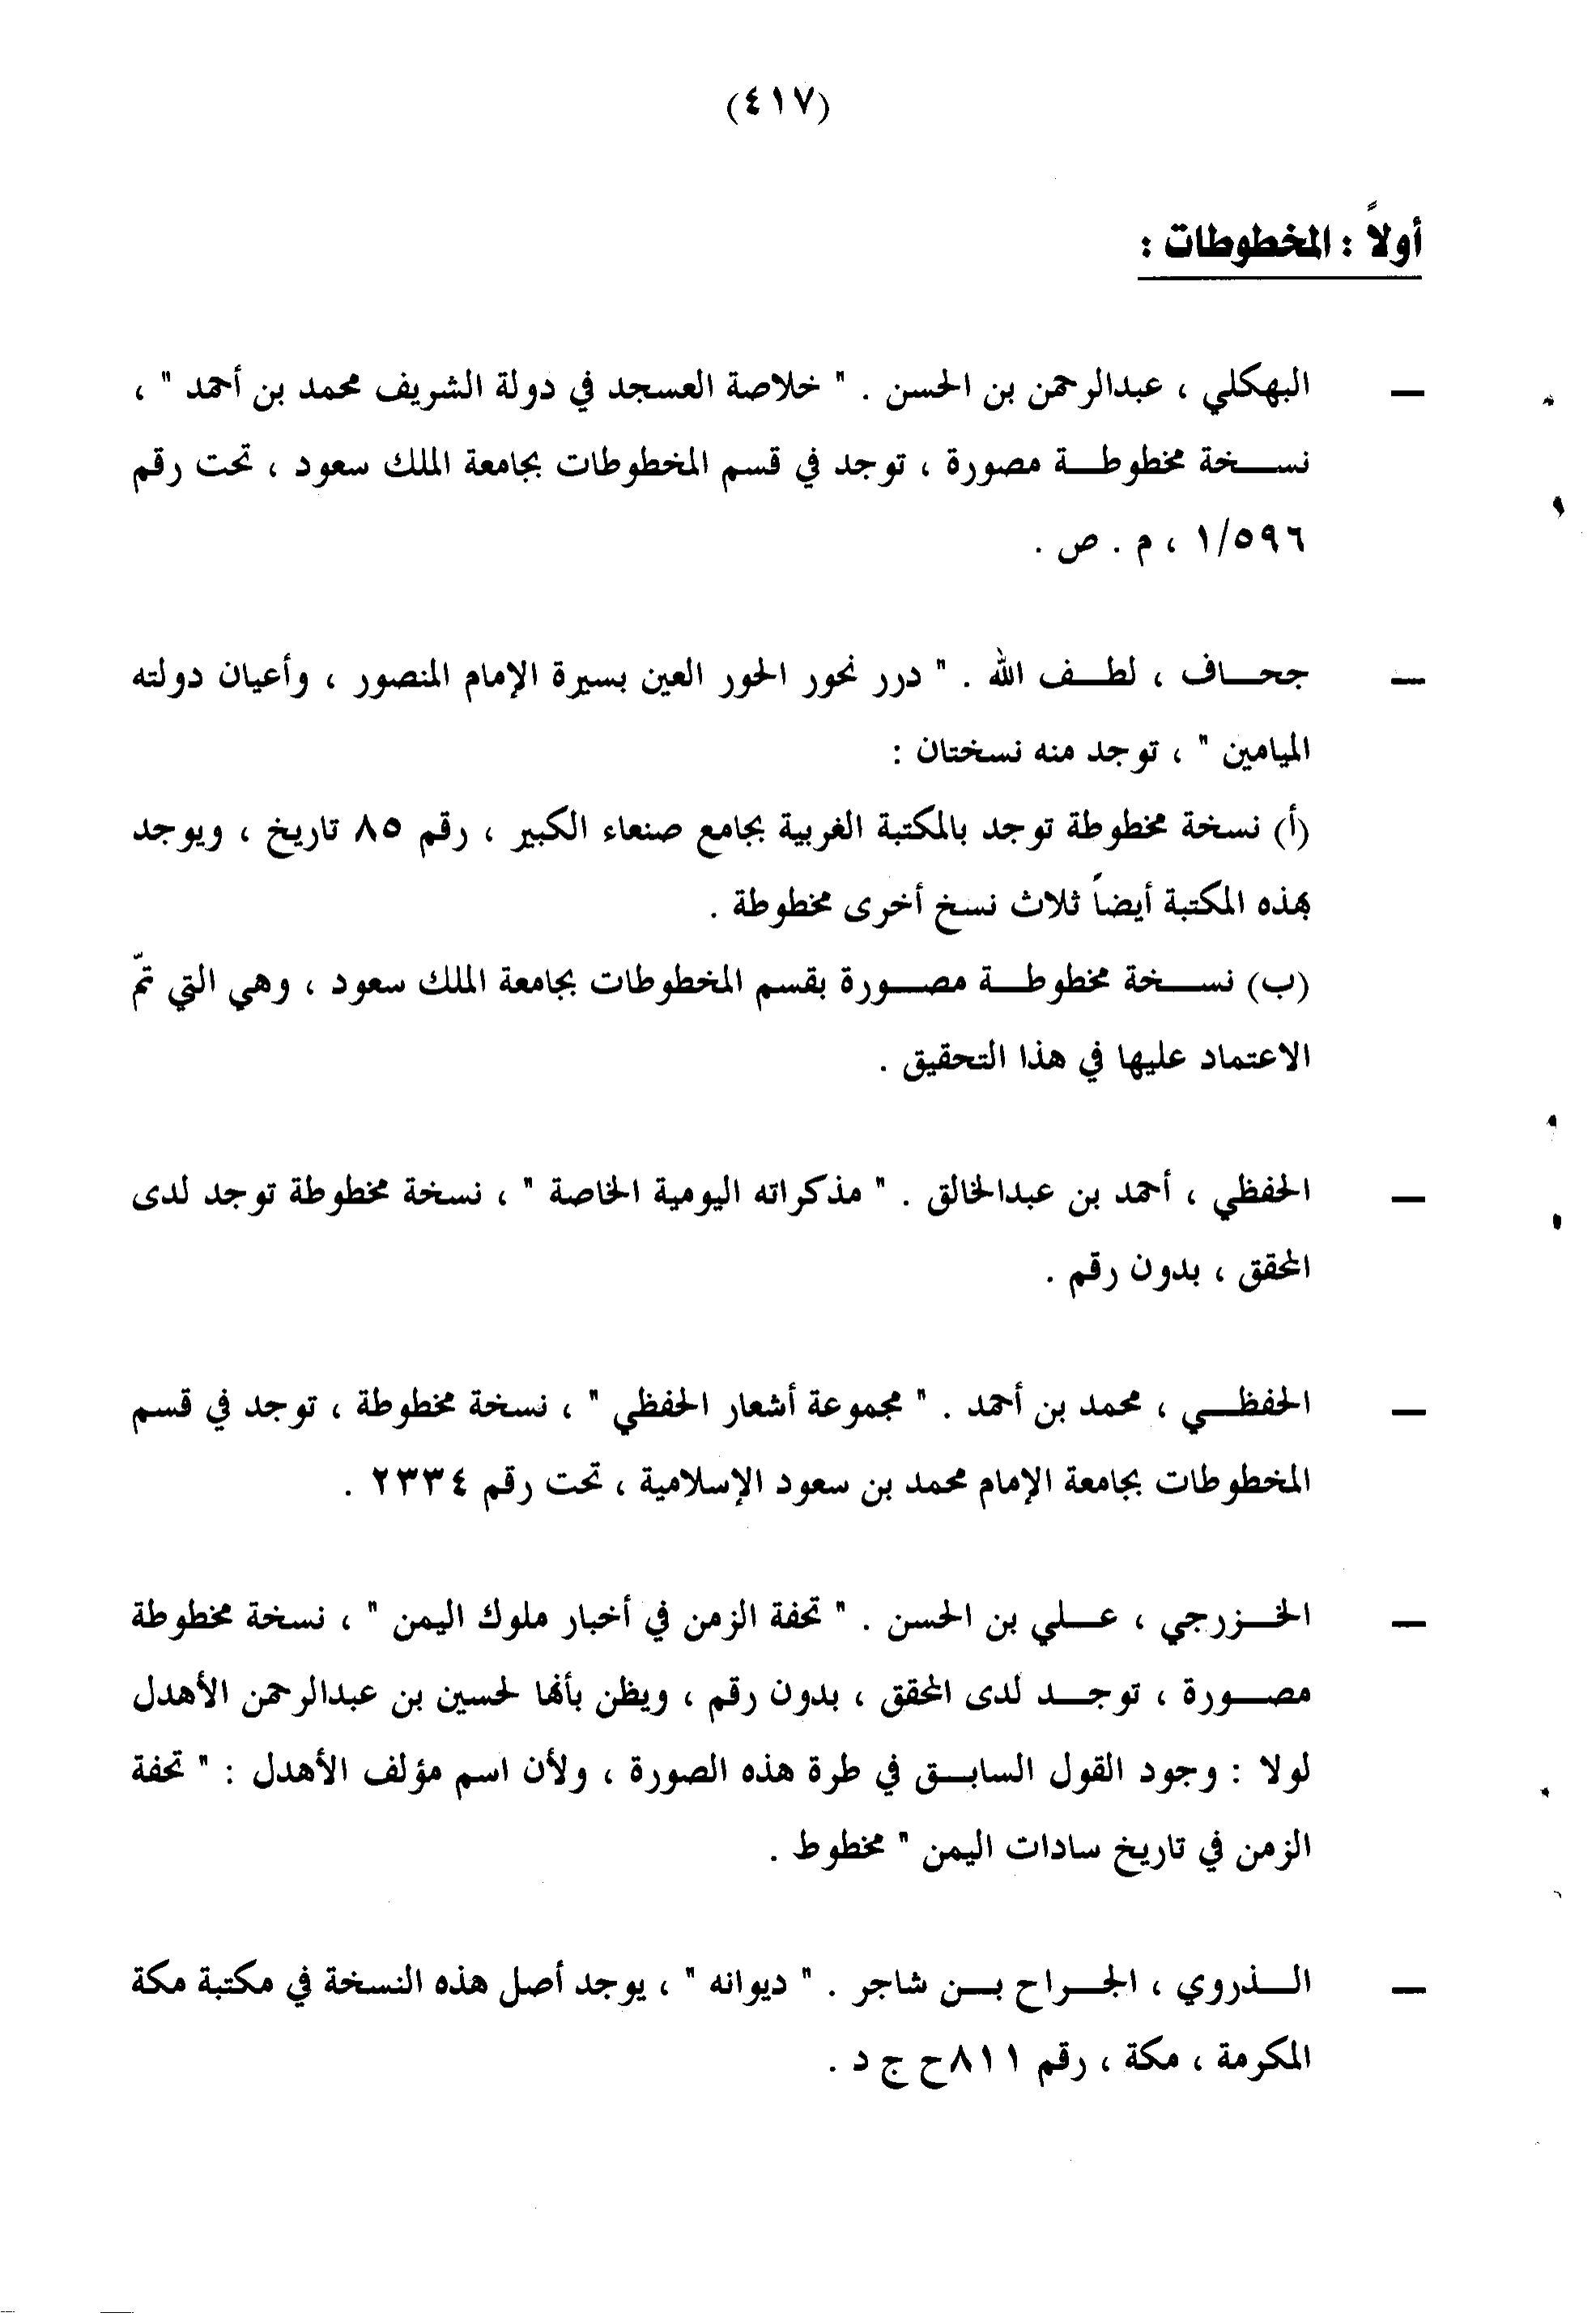 (٤١٧)
أولاً : المخطوطات :
— البهكلي ، عبدالرحمن بن الحسن . " خلاصة العسجد في دولة الشريف محمد بن أحمد " ،
نسخة مخطوطة مصورة ، توجد في قسم المخطوطات بجامعة الملك سعود ، تحت رقم
١/٥٩٦ ، م . ص .
— جحاف ، لطف الله . " درر نحور الحور العين بسيرة الإمام المنصور ، وأعيان دولته
الميامين " ، توجد منه نسختان :
(أ) نسخة مخطوطة توجد بالمكتبة الغربية بجامع صنعاء الكبير ، رقم ٨٥ تاريخ ، ويوجد
بهذه المكتبة أيضاً ثلاث نسخ أخرى مخطوطة .
(ب) نسخة مخطوطة مصورة بقسم المخطوطات بجامعة الملك سعود ، وهي التي تمّ
الاعتماد عليها في هذا التحقيق .
— الحفظي ، أحمد بن عبدالخالق . " مذكراته اليومية الخاصة " ، نسخة مخطوطة توجد لدى
المحقق ، بدون رقم .
— الحفظي ، محمد بن أحمد . " مجموعة أشعار الحفظي " ، نسخة مخطوطة ، توجد في قسم
المخطوطات بجامعة الإمام محمد بن سعود الإسلامية ، تحت رقم ٢٣٣٤ .
— الخزرجي ، علي بن الحسن . " تحفة الزمن في أخبار ملوك اليمن " ، نسخة مخطوطة
مصورة ، توجد لدى المحقق ، بدون رقم ، ويظن بأنها لحسين بن عبدالرحمن الأهدل
لولا : وجود القول السابق في طرة هذه الصورة ، ولأن اسم مؤلف الأهدل : " تحفة
الزمن في تاريخ سادات اليمن " مخطوط .
— الذروي ، الجراح بن شاجر . " ديوانه " ، يوجد أصل هذه النسخة في مكتبة مكة
المكرمة ، مكة ، رقم ٨١١ح ج د .